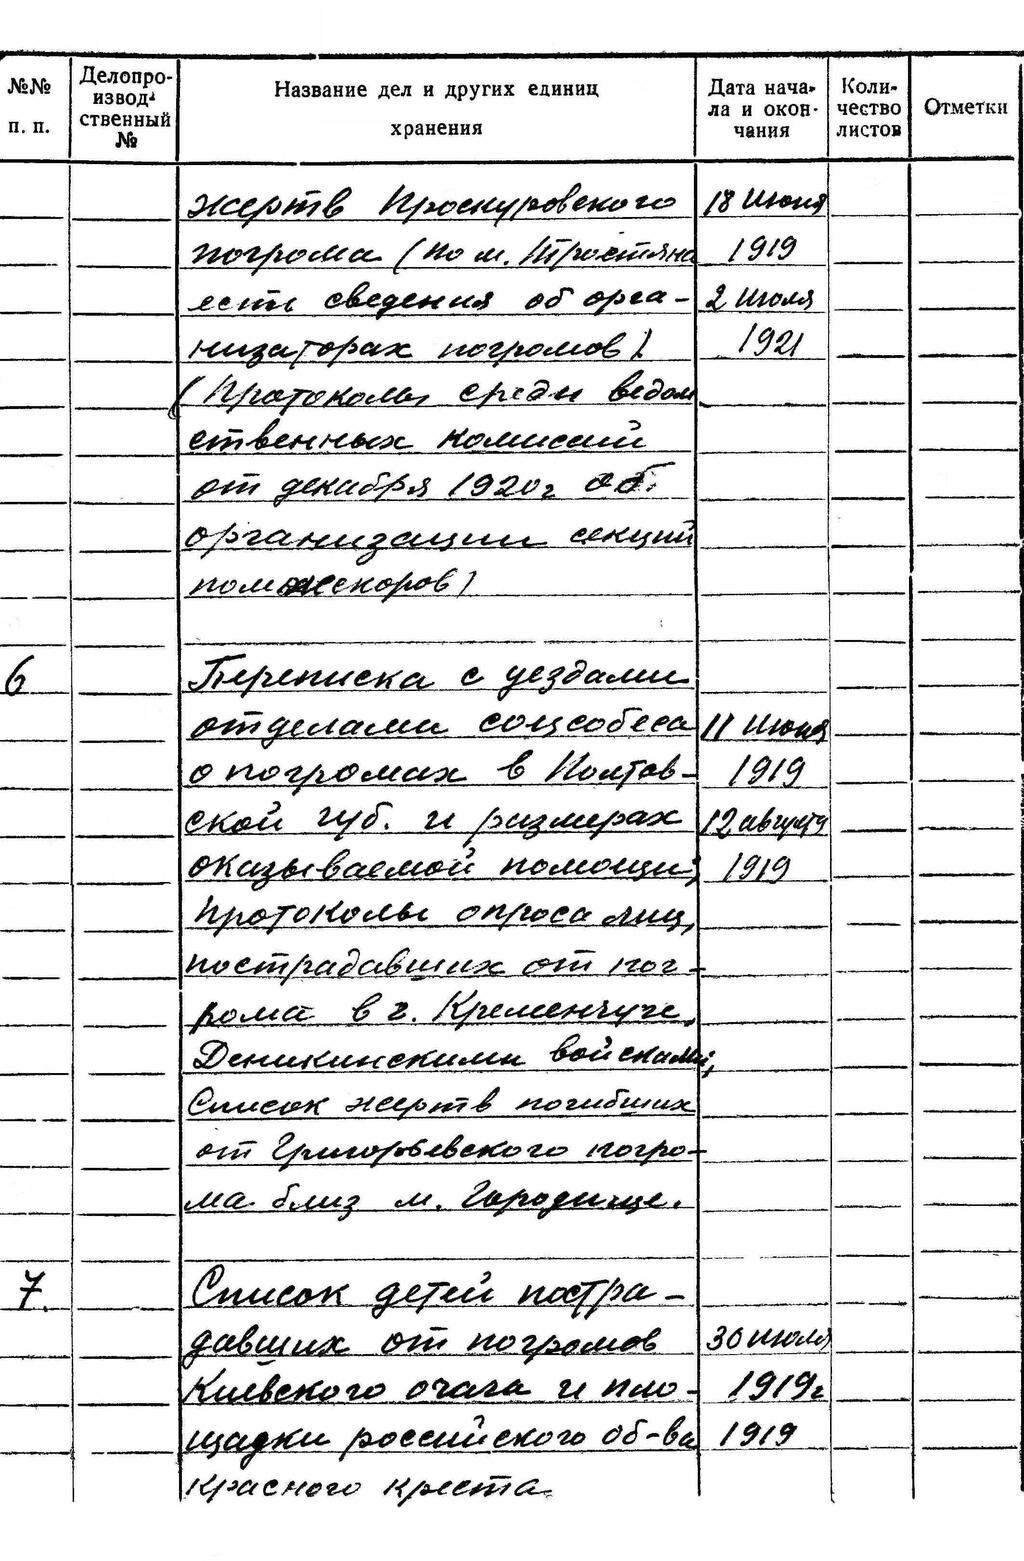 №№ п. п.
Делопроизвод-ственный №
Название дел и других единиц хранения
Дата начала и окончания
Количество листов
Отметки
жертв Проскуровского
18 июня
погрома (по м. Тростяна
1919
есть сведения об орга-
2 июля
низаторах погромов).
1921
(Протоколы среди ведом
ственных комиссий
от декабря 1920 г об.
организации секций
помжескоров)
6
Переписка с уездами
отделами соцсобеса
11 июня
о погромах в Полтав-
1919
ской губ. и размерах
12 августа
оказываемой помощи;
1919
Протоколы опроса лиц,
пострадавших от пог-
рома в г. Кременчуге,
Деникинскими войсками;
Список жертв погибших
от Григорьевского погро-
ма близ м. Городище.
7.
Список детей постра-
давших от погромов
30 июля
Киевского очага и пло-
1919 г
щадки российского об-ва
1919
Красного креста